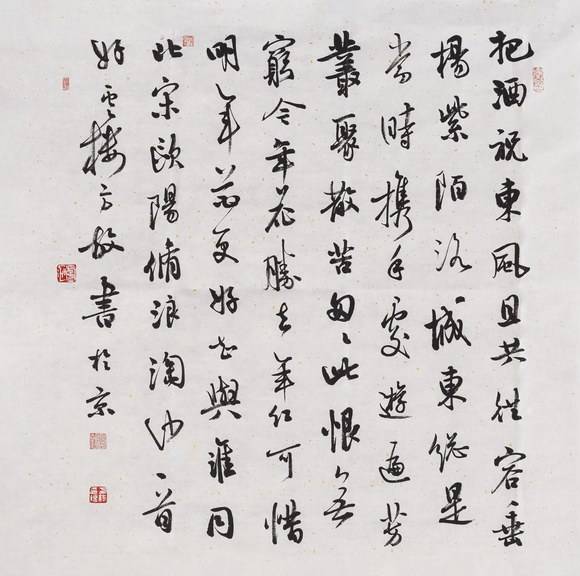 把酒祝東風且共從容垂
楊紫陌洛城東總是
當時携手處遊遍芳
叢聚散苦匆匆此恨無
窮今年花勝去年紅可惜
明年花更好知與誰同
此宋歐陽脩浪淘沙一首
好雲樓方放書於京